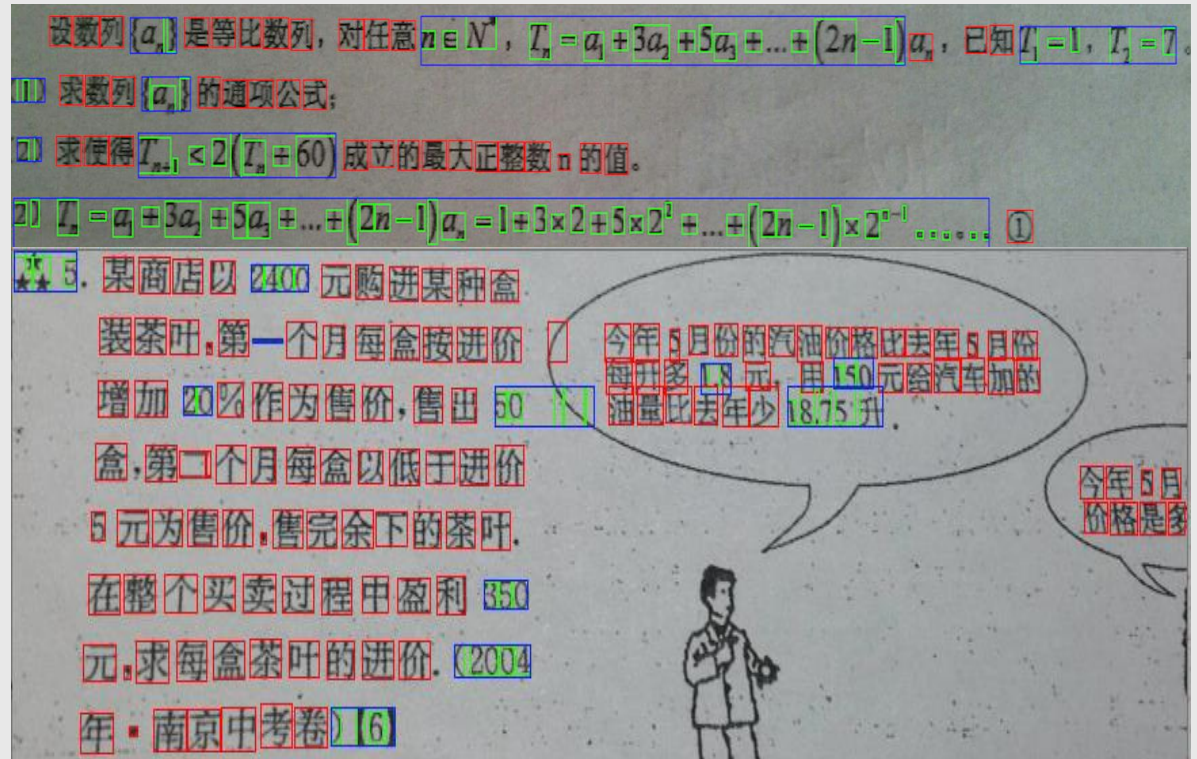 设数列{aₙ}是等比数列，对任意n∈N*，Tₙ=a₁+3a₂+5a₃+...+(2n−1)aₙ，已知T₁=1，T₂=7。
(1) 求数列{aₙ}的通项公式；
(2) 求使得Tₙ₊₁<2(Tₙ+60)成立的最大正整数n的值。
(2) Tₙ=a₁+3a₂+5a₃+...+(2n−1)aₙ=1+3×2+5×2²+...+(2n−1)×2ⁿ⁻¹...... ①
★★★ 5. 某商店以 2400 元购进某种盒
装茶叶,第一个月每盒按进价
增加 20%作为售价,售出 50
盒,第二个月每盒以低于进价
5 元为售价,售完余下的茶叶.
在整个买卖过程中盈利 350
元,求每盒茶叶的进价. (2004
年·南京中考卷) (6)
今年5月份的汽油价格比去年5月份
每升多 1.8 元, 用 150 元给汽车加的
油量比去年少 18.75 升.
今年5月
价格是多